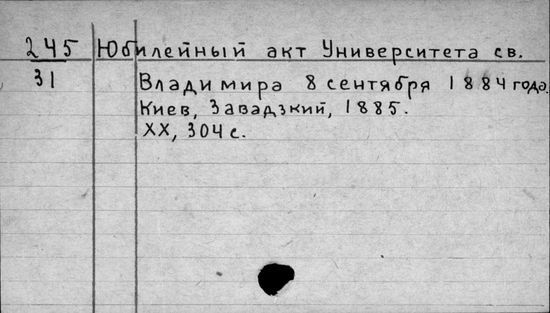 245 Юбилейный акт Университета св.
31 Владимира 8 сентября 1884 года.
Киев, Завадзкий, 1885.
XX, 304 с.